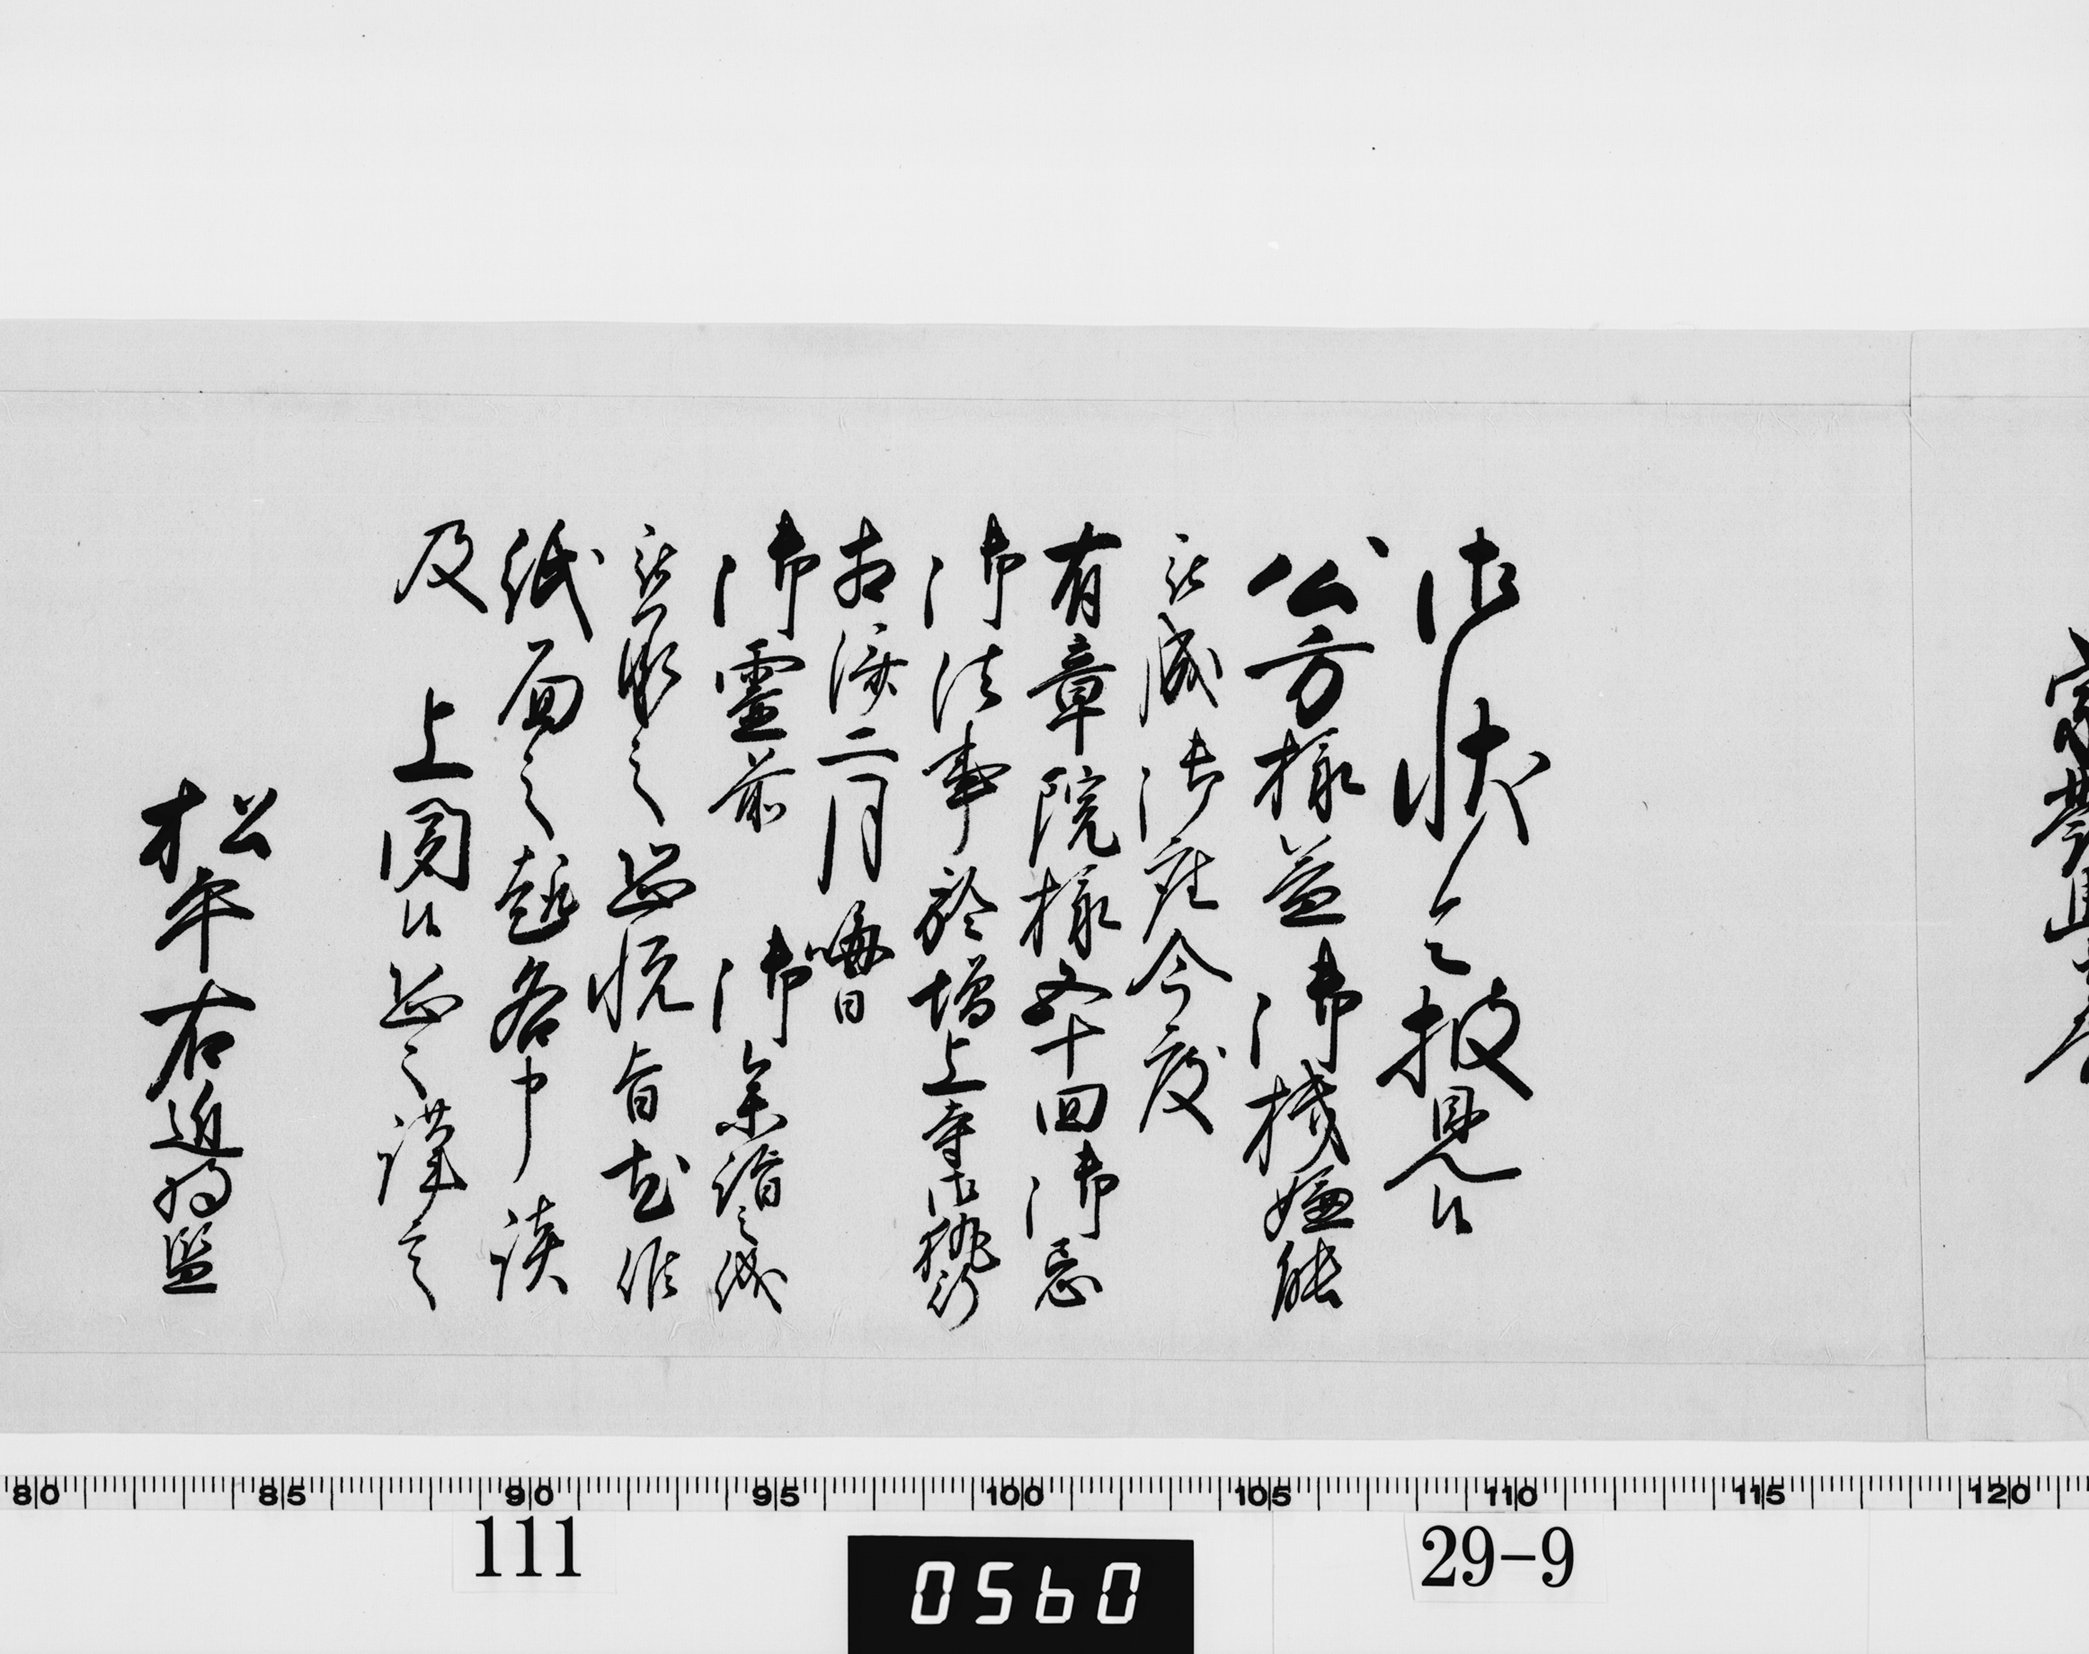 御状令披見候
公方様益御機嫌能
被成御座今度
有章院様五十回御忌
御法事於増上寺御執行
相済二月晦日
御霊前 御参詣之儀
被承之恐悦旨尤候
紙面之趣各申談
及 上聞候恐々謹言
松平右近将監
80 85 90 95 100 105 110 115 120
111
0560
29-9